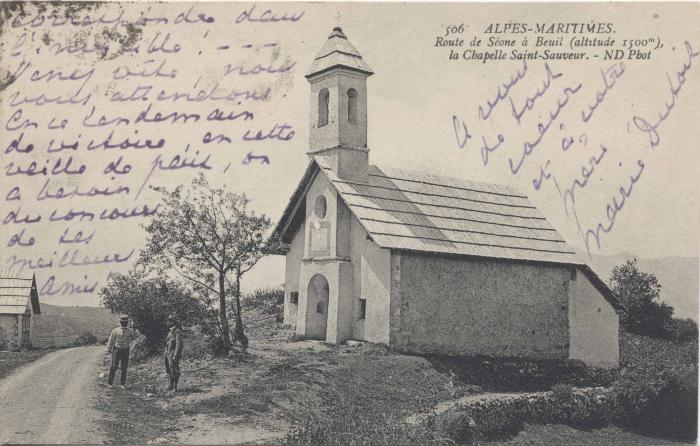 correspondre dans
l'invisible ! ---
Venez vite, nous
vous attendons.
En ce lendemain
de victoire, en cette
veille de paix, on
a besoin
du concours
de ses
meilleurs
Amis.
506 ALPES-MARITIMES.
Route de Séone à Beuil (altitude 1500ᵐ),
la Chapelle Saint-Sauveur. - ND Phot
à vous
de tout
coeur
et à votre
père
Marie Dutoit